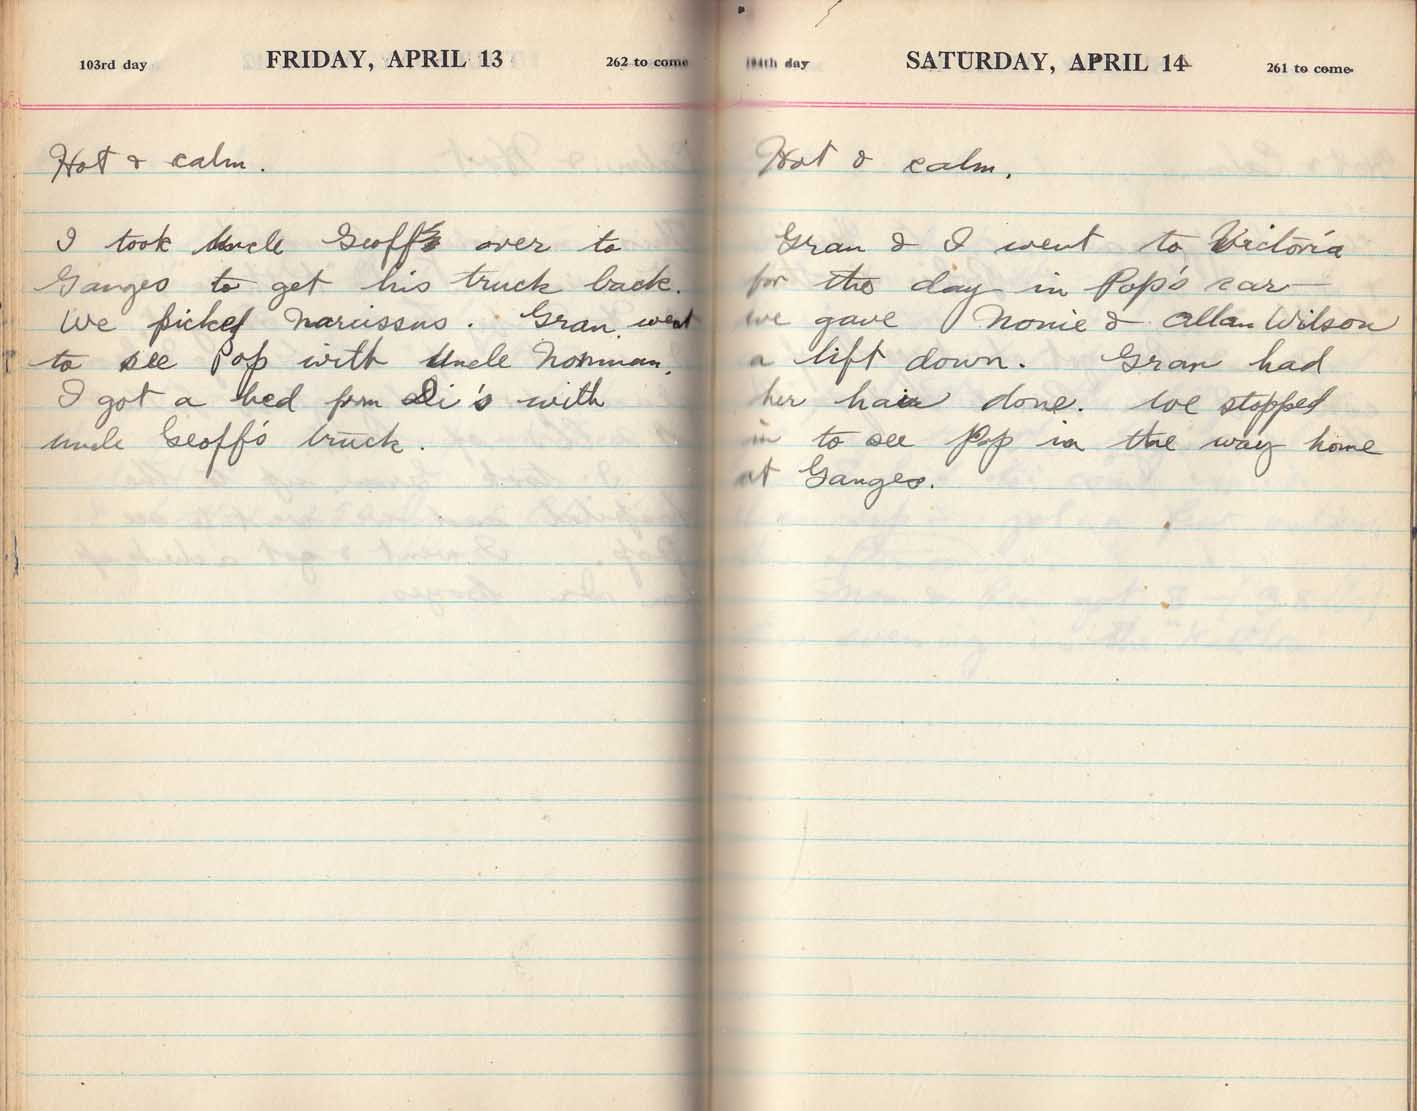 103rd day FRIDAY, APRIL 13 262 to come
Hot & calm.
I took Uncle Geoff's over to
Ganges to get his truck back.
We picked Narcissus. Gran went
to see Pop with Uncle Norman.
I got a bed from Di's with
uncle Geoff's truck.
104th day SATURDAY, APRIL 14 261 to come
Hot & calm.
Gran & I went to Victoria
for the day in Pop's car
we gave Nonie & Allan Wilson
a lift down. Gran had
her hair done. We stopped
in to see Pop in the way home
at Ganges.